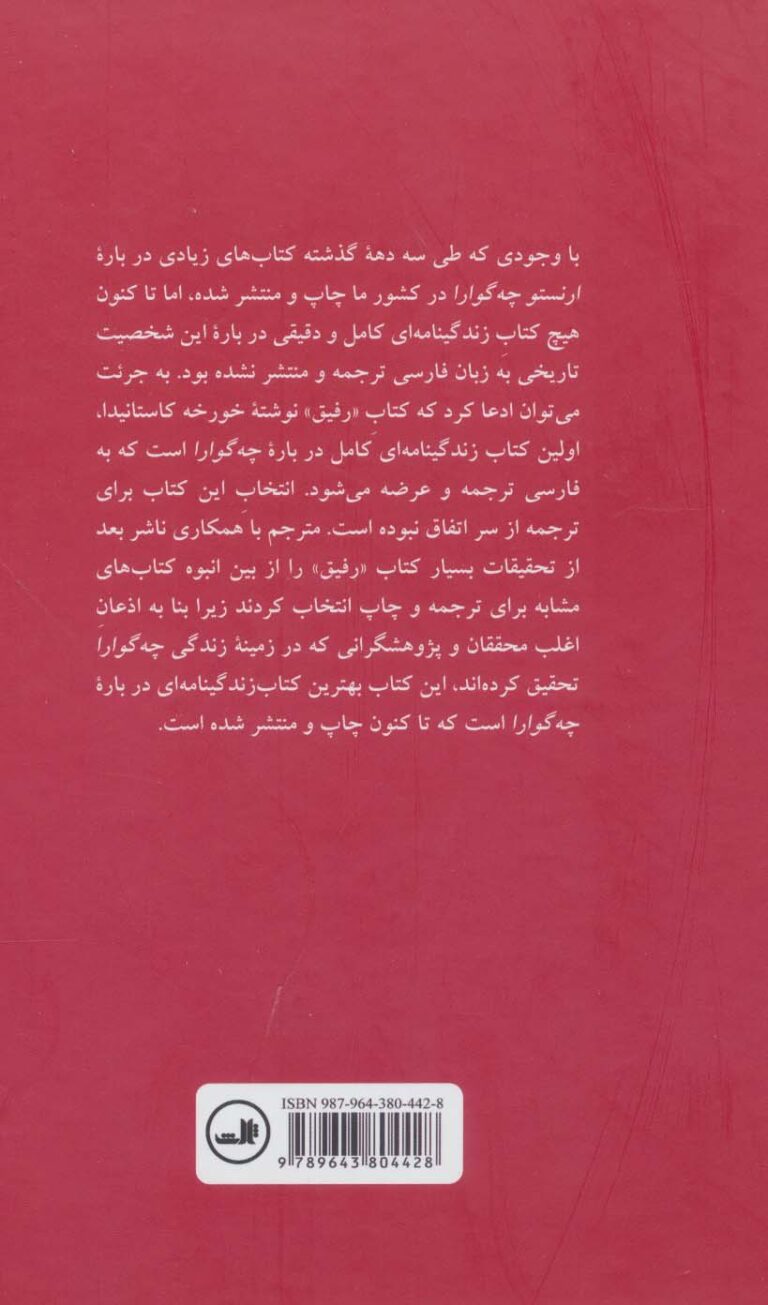 با وجودی که طی سه دههٔ گذشته کتاب‌های زیادی در بارهٔ
ارنستو چه‌گوارا در کشور ما چاپ و منتشر شده، اما تا کنون
هیچ کتابِ زندگینامه‌ای کامل و دقیقی در بارهٔ این شخصیت
تاریخی به زبان فارسی ترجمه و منتشر نشده بود. به جرئت
می‌توان ادعا کرد که کتابِ «رفیق» نوشتهٔ خورخه کاستانیدا،
اولین کتاب زندگینامه‌ایِ کامل در بارهٔ چه‌گوارا است که به
فارسی ترجمه و عرضه می‌شود. انتخابِ این کتاب برای
ترجمه از سر اتفاق نبوده است. مترجم با همکاریِ ناشر بعد
از تحقیقات بسیار کتاب «رفیق» را از بین انبوه کتاب‌های
مشابه برای ترجمه و چاپ انتخاب کردند زیرا بنا به اذعانِ
اغلب محققان و پژوهشگرانی که در زمینهٔ زندگیِ چه‌گوارا
تحقیق کرده‌اند، این کتاب بهترین کتاب‌زندگینامه‌ای در بارهٔ
چه‌گوارا است که تا کنون چاپ و منتشر شده است.
ISBN 987-964-380-442-8
ثالث
9 789643 804428